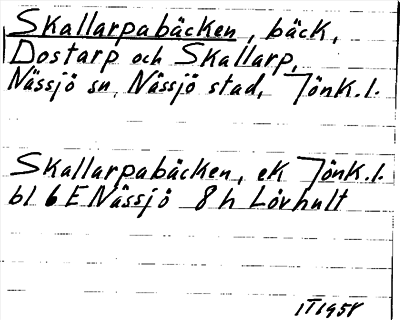 Skallarpabäcken, bäck,
Dostarp och Skallarp,
Nässjö sn, Nässjö stad, Jönk.l.
Skallarpabäcken, ek Jönk.l.
bl 6E Nässjö 8h Lövhult